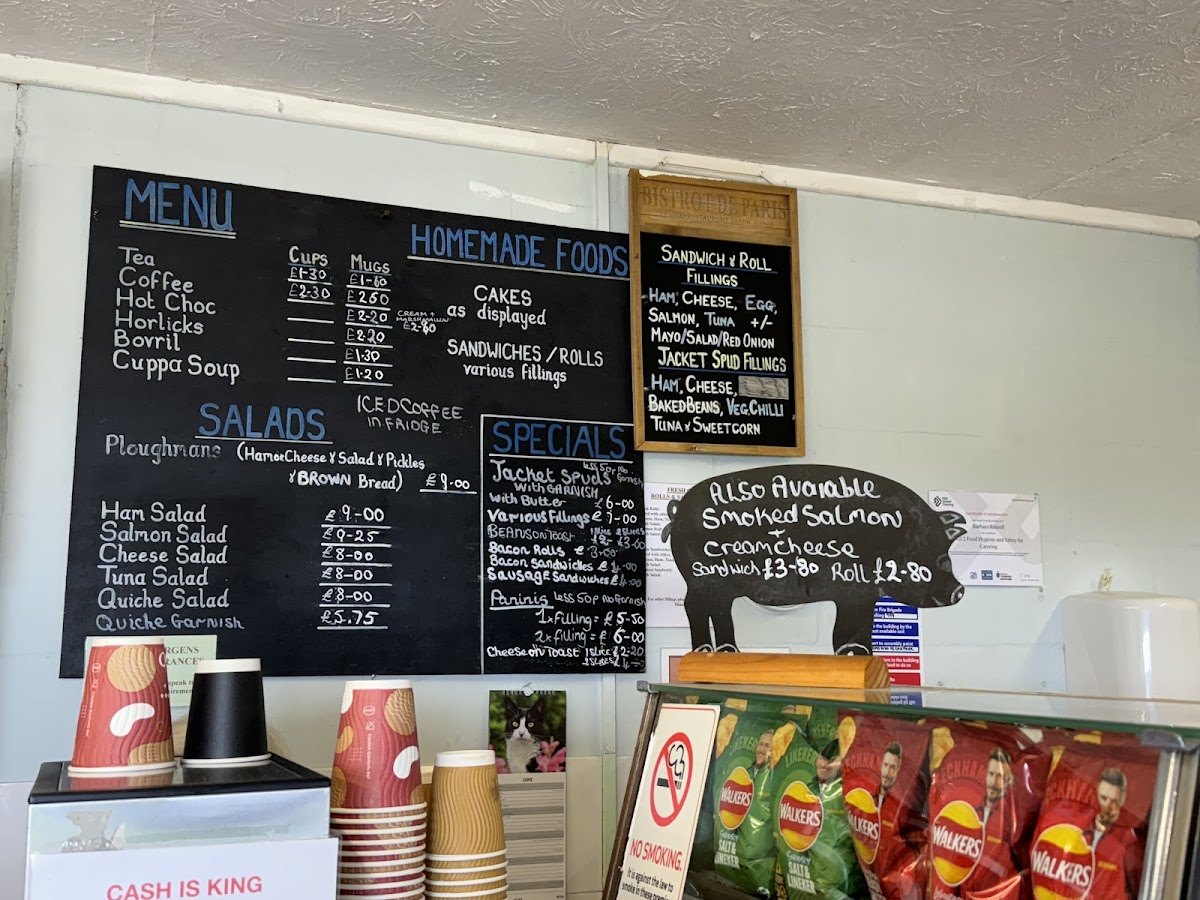 MENU
CUPS MUGS
Tea £1-30 £1-60
Coffee £2-30 £2.50
Hot Choc £2-20 CREAM + MARSHMALLOW £2-80
Horlicks £2.20
Bovril £1-30
Cuppa Soup £1-20
HOMEMADE FOODS
CAKES
as displayed
SANDWICHES/ROLLS
various fillings
ICED COFFEE
IN FRIDGE
SALADS
Ploughmans (Ham or Cheese & Salad & Pickles
& BROWN Bread) £9-00
Ham Salad £9-00
Salmon Salad £9-25
Cheese Salad £8-00
Tuna Salad £8-00
Quiche Salad £8-00
QUICHE GARNISH £5.75
SPECIALS
JACKET SPUDS less 50p NO Garnish
WITH GARNISH
with Butter £6-00
VARIOUS FILLINGS £7-00
BEANS ON TOAST 1 Slice 2 Slices
£3.00
Bacon Rolls £
Bacon Sandwiches £4-00
Sausage Sandwiches £4-00
PANINIS less 50p NO Garnish
1x Filling = £5-50
2x filling = £6-00
Cheese on Toast 1 Slice £2-20
2 Slices
BISTROT DE PARIS
SANDWICH & ROLL
FILLINGS
HAM, CHEESE, EGG,
SALMON, TUNA +/-
MAYO/SALAD/RED ONION
JACKET SPUD FILLINGS
HAM, CHEESE,
BAKED BEANS, VEG.CHILLI
TUNA & SWEETCORN
ALSO AVAIABLE
SMOKED SALMON
+
CREAM CHEESE
Sandwich £3-80 Roll £2-80
FRESH
Barbara Russell
Food Hygiene and Safety for
Catering
CASH IS KING
JUNE
NO SMOKING.
It is against the law to
smoke in these premises
LINEKER
WALKERS
SALT &
LINEKER
LINEKER
WALKERS
SALT &
LINEKER
WALKERS
BECKHAM
WALKERS
WALKERS